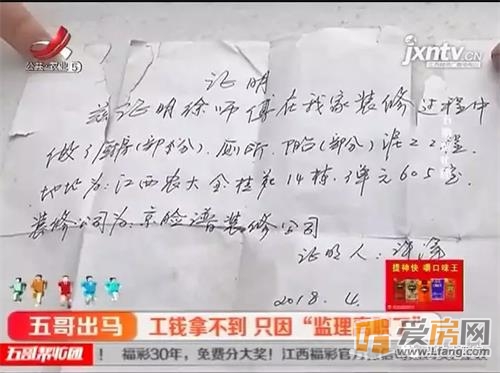 公共·农业 5
jxntv.CN
证明
兹证明徐师傅在我家装修过程中
做了厨房(部分).厕所.阳台(部分)泥工工程.
地址为:江西农大金桂苑14栋1单元605室.
装修公司为:京脸谱装修公司
证明人:
2018.4.
提神快 嚼口味王
五哥出马
工钱拿不到 只因“监理离职
五哥帮忙团
! 福彩30年，免费分大奖！江西福彩官方
爱房网
Lfang.com